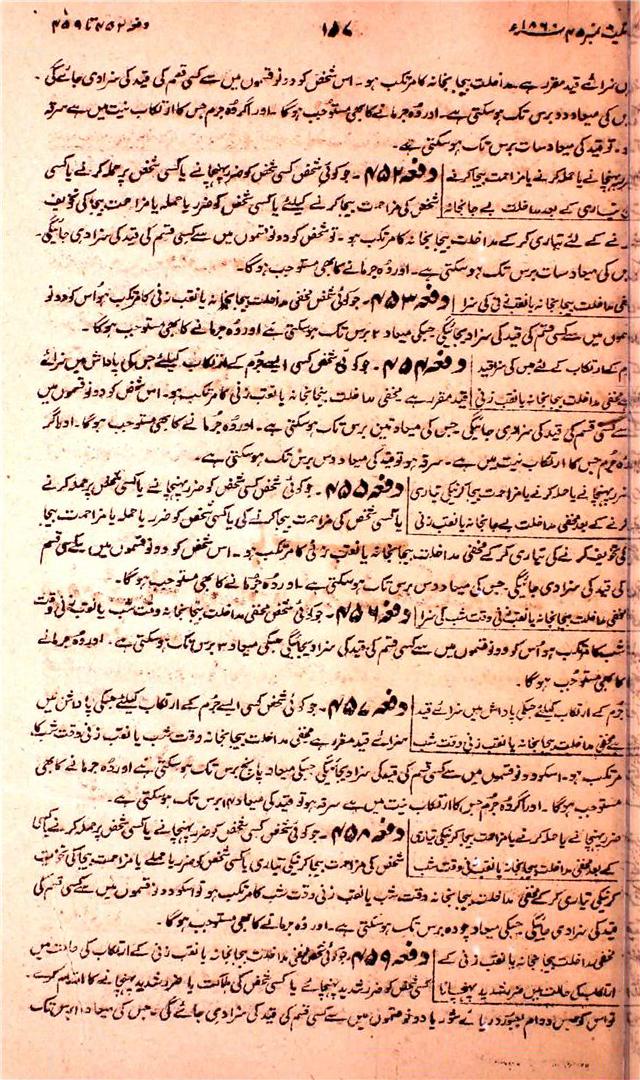 ایکٹ نمبر ۴۵ ۱۸۶۰ء ۱۵۷ دفعہ ۴۵۲ تا ۴۵۹
سزائے قید مقرر ہے مداخلت بیجا بخانہ کا مرتکب ہو۔ اس شخص کو دونو قسموں میں سے کسی قسم کی قید کی سزا دی جائے گی
جس کی میعاد دو برس تک ہو سکتی ہے۔ اور وہ جرمانے کا بھی مستوجب ہوگا۔ اور اگر وہ جرم جس کا ارتکاب نیت میں ہے سرقہ
ہو۔ تو قید کی میعاد سات برس تک ہو سکتی ہے۔
ضرر پہنچانے یا حملہ کرنے یا مزاحمت بیجا کرنے دفعہ ۴۵۲۔ جو کوئی شخص کسی شخص کو ضرر پہنچانے یا کسی شخص پر حملہ کرنے یا کسی
کی تیاری کے بعد مداخلت بے جا بخانہ شخص کی مزاحمت بیجا کرنے کیلئے یا کسی شخص کو ضرر یا حملہ یا مزاحمت بیجا کی تخویف
کرنے کے لئے تیاری کر کے مداخلت بیجا بخانہ کا مرتکب ہو۔ تو شخص کو دونو قسموں میں سے کسی قسم کی قید کی سزا دی جائیگی۔
جس کی میعاد سات برس تک ہو سکتی ہے۔ اور وہ جرمانے کا بھی مستوجب ہوگا۔
مخفی مداخلت بیجا بخانہ یا نقب زنی کی سزا دفعہ ۴۵۳۔ جو کوئی شخص مخفی مداخلت بیجا بخانہ یا نقب زنی کا مرتکب ہو اس کو دونو
قسموں میں سے کسی قسم کی قید کی سزا دیجائیگی جسکی میعاد ۲ برس تک ہو سکتی ہے اور وہ جرمانے کا بھی مستوجب ہوگا۔
جرم کے ارتکاب کے لئے جس کی سزا قید دفعہ ۴۵۴۔ جو کوئی شخص کسی ایسے جرم کے ارتکاب کیلئے جس کی پاداش میں سزائے
ہے مخفی مداخلت بیجا بخانہ یا نقب زنی قید مقرر ہے مخفی مداخلت بیجا بخانہ یا نقب زنی کا مرتکب ہو۔ اس شخص کو دونو قسموں میں
سے کسی قسم کی قید کی سزا دی جائیگی۔ جس کی میعاد تین برس تک ہو سکتی ہے۔ اور وہ جرمانے کا بھی مستوجب ہوگا۔ اور اگر
وہ جرم جس کا ارتکاب نیت میں ہے۔ سرقہ ہو تو قید کی میعاد دس برس تک ہو سکتی ہے۔
ضرر پہنچانے یا حملہ کرنے یا مزاحمت بیجا کرنیکی تیاری دفعہ ۴۵۵۔ جو کوئی شخص کسی شخص کو ضرر پہنچانے یا کسی شخص پر حملہ کرنے
کرنے کے بعد مخفی مداخلت بے جا بخانہ یا نقب زنی یا کسی شخص کی مزاحمت بیجا کرنے کی یا کسی شخص کو ضرر یا حملہ یا مزاحمت بیجا
کی تخویف کرنے کی تیاری کر کے مخفی مداخلت بیجا بخانہ یا نقب زنی کا مرتکب ہو۔ اس شخص کو دونو قسموں میں سے کسی قسم
کی قید کی سزا دی جائیگی۔ جس کی میعاد دس برس تک ہو سکتی ہے۔ اور وہ جرمانے کا بھی مستوجب ہوگا۔
مخفی مداخلت بیجا بخانہ یا نقب زنی وقت شب کی سزا دفعہ ۴۵۶۔ جو کوئی شخص مخفی مداخلت بیجا بخانہ وقت شب یا نقب زنی وقت
شب کا مرتکب ہو اس کو دونو قسموں میں سے کسی قسم کی قید کی سزا دیجائیگی جسکی میعاد ۳ برس تک ہو سکتی ہے۔ اور وہ جرمانے
کا بھی مستوجب ہوگا۔
جرم کے ارتکاب کیلئے جسکی پاداش میں سزائے قید دفعہ ۴۵۷۔ جو کوئی شخص کسی ایسے جرم کے ارتکاب کیلئے جسکی پاداش میں
ہے مخفی مداخلت بیجا بخانہ یا نقب زنی وقت شب سزائے قید مقرر ہے مخفی مداخلت بیجا بخانہ وقت شب یا نقب زنی وقت شب کا
مرتکب ہو۔ اسکو دونو قسموں میں سے کسی قسم کی قید کی سزا دیجائیگی جسکی میعاد پانچ برس تک ہو سکتی ہے اور وہ جرمانے کا بھی
مستوجب ہوگا۔ اور اگر وہ جرم جس کا ارتکاب نیت میں ہے سرقہ ہو تو قید کی میعاد ۱۴ برس تک ہو سکتی ہے۔
ضرر پہنچانے یا حملہ کرنے یا مزاحمت بیجا کرنیکی تیاری دفعہ ۴۵۸۔ جو کوئی شخص کسی شخص کو ضرر پہنچانے یا کسی شخص پر حملہ کرنے یا کسی
کے بعد مخفی مداخلت بیجا بخانہ یا نقب زنی وقت شب شخص کی مزاحمت بیجا کرنیکی تیاری یا کسی شخص کو ضرر یا حملے یا مزاحمت بیجا کی تخویف
کرنیکی تیاری کر کے مخفی مداخلت بیجا بخانہ وقت شب یا نقب زنی وقت شب کا مرتکب ہو تو اسکو دونو قسموں میں سے کسی قسم کی
قید کی سزا دی جائیگی جسکی میعاد چودہ برس تک ہو سکتی ہے۔ اور وہ جرمانے کا بھی مستوجب ہوگا۔
مخفی مداخلت بیجا بخانہ یا نقب زنی کے دفعہ ۴۵۹۔ جو کوئی شخص مخفی مداخلت بیجا بخانہ یا نقب زنی کے ارتکاب کی حالت میں
ارتکاب کی حالت میں ضرر شدید پہنچانا کسی شخص کو ضرر شدید پہنچائے یا کسی شخص کی ہلاکت یا ضرر شدید پہنچانے کا اقدام کرے۔
تو اس کو حبس دوام بعبور دریائے شور یا دونو قسموں میں سے کسی قسم کی قید کی سزا دی جائے گی۔ جس کی میعاد ۱۰ برس تک